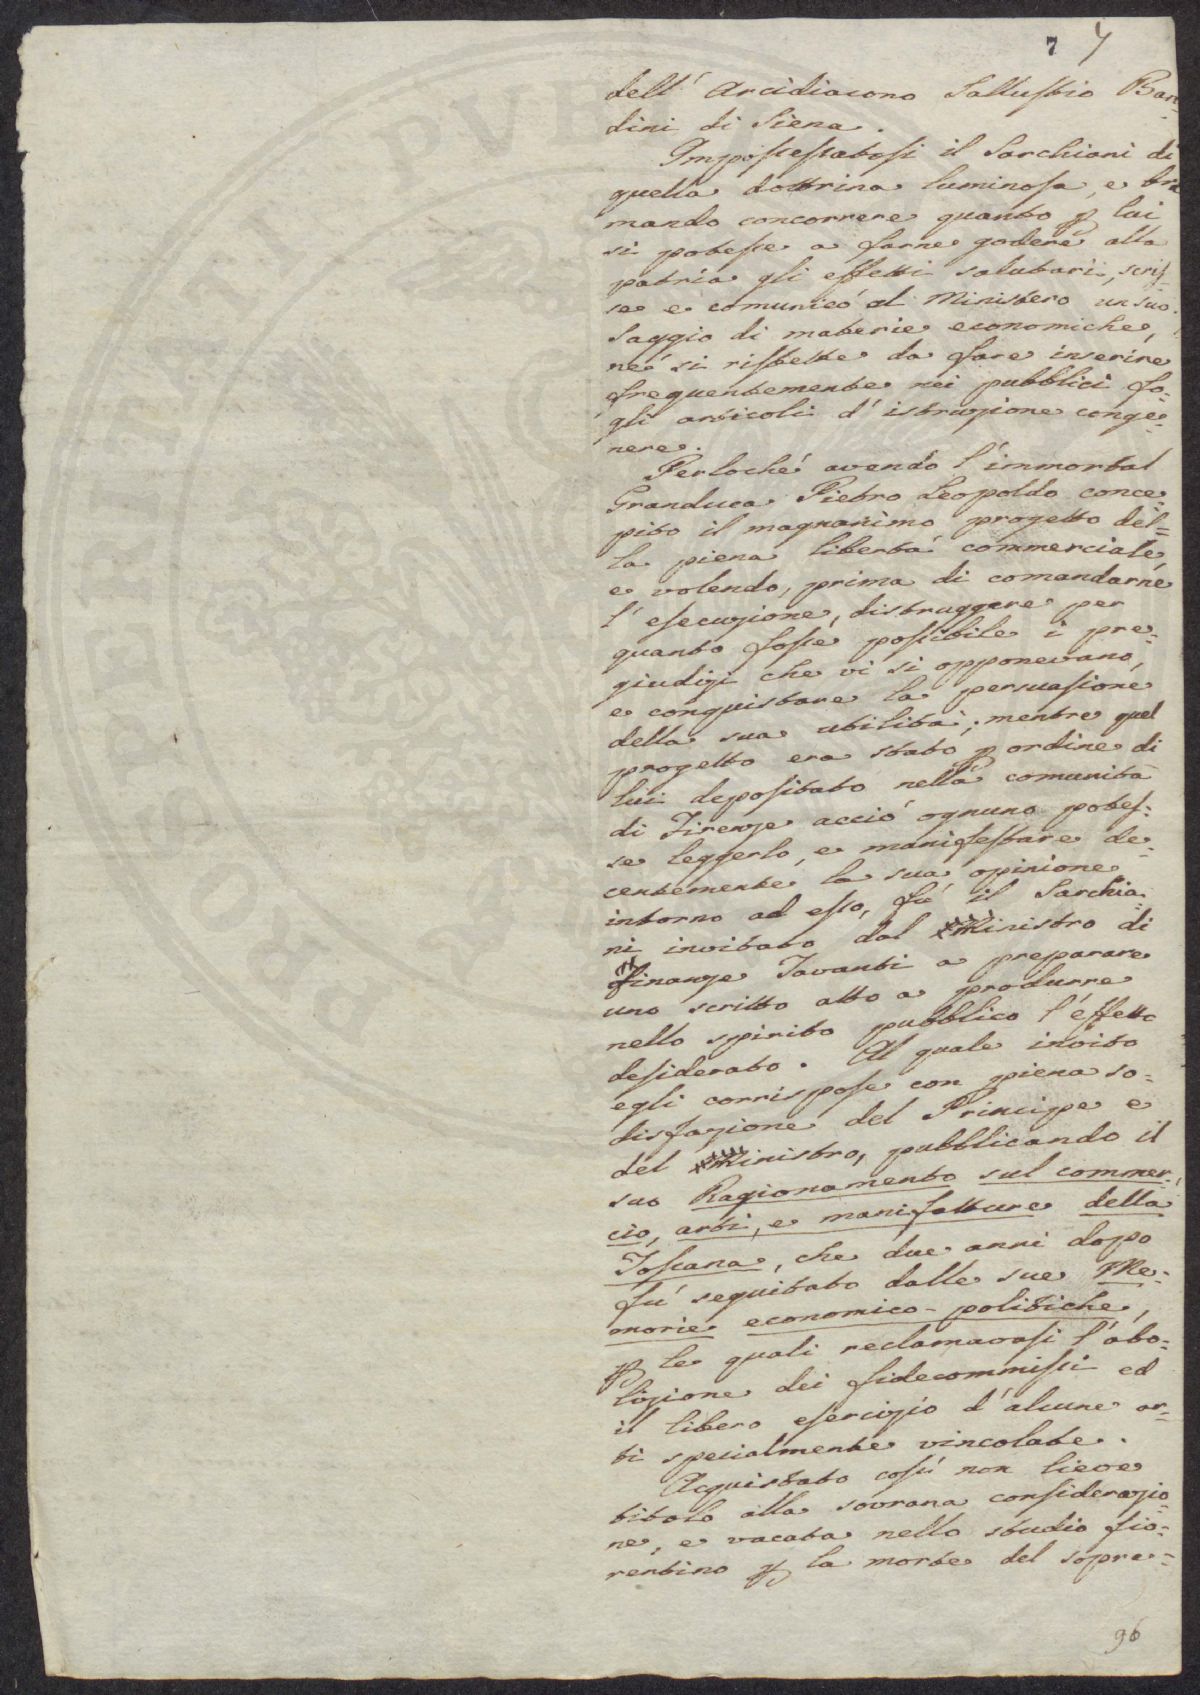 7 7
dell' Arcidiacono Sallustio Ban=
dini di Siena.
Impossessatosi il Sarchiani di
quella dottrina luminosa, e bra
mando concorrere quanto p lui
si potesse a farne godere alla
patria gli effetti salutari, scris=
se e comunicò al Ministero un suo
Saggio di materie economiche,
né si ristette da fare inserire
frequentemente nei pubblici fo=
gli articoli d'istruzione conge=
nere.
Perloché avendo l'immortal
Granduca Pietro Leopoldo conce=
pito il magnanimo progetto del=
la piena libertà commerciale,
e volendo, prima di comandarne
l'esecuzione, distruggere per
quanto fosse possibile i pre=
giudizi che vi si opponevano,
e conquistare la persuasione
della sua utilità; mentre quel
progetto era stato p ordine di
lui depositato nella comunità
di Firenze acciò ognuno potes=
se leggerlo, e manifestare de=
centemente la sua opinione
intorno ad esso, fù il Sarchia=
ni invitato dal Ministro di
finanze Tavanti a preparare
uno scritto atto a produrre
nello spirito pubblico l'effetto
desiderato. Al quale invito
egli corrispose con piena so=
disfazione del Principe e
del Ministro, pubblicando il
suo Ragionamento sul commer=
cio, arti, e manifatture della
Toscana, che due anni dopo
fù seguitato dalle sue Me=
morie economico-politiche,
p le quali reclamavasi l'abo=
lizione dei fidecommissi ed
il libero esercizio d'alcune ar=
ti specialmente vincolate.
Acquistato così non lieve
titolo alla sovrana considerazio=
ne, e vacata nello studio fio=
rentino p la morte del sopra=
96
PVB